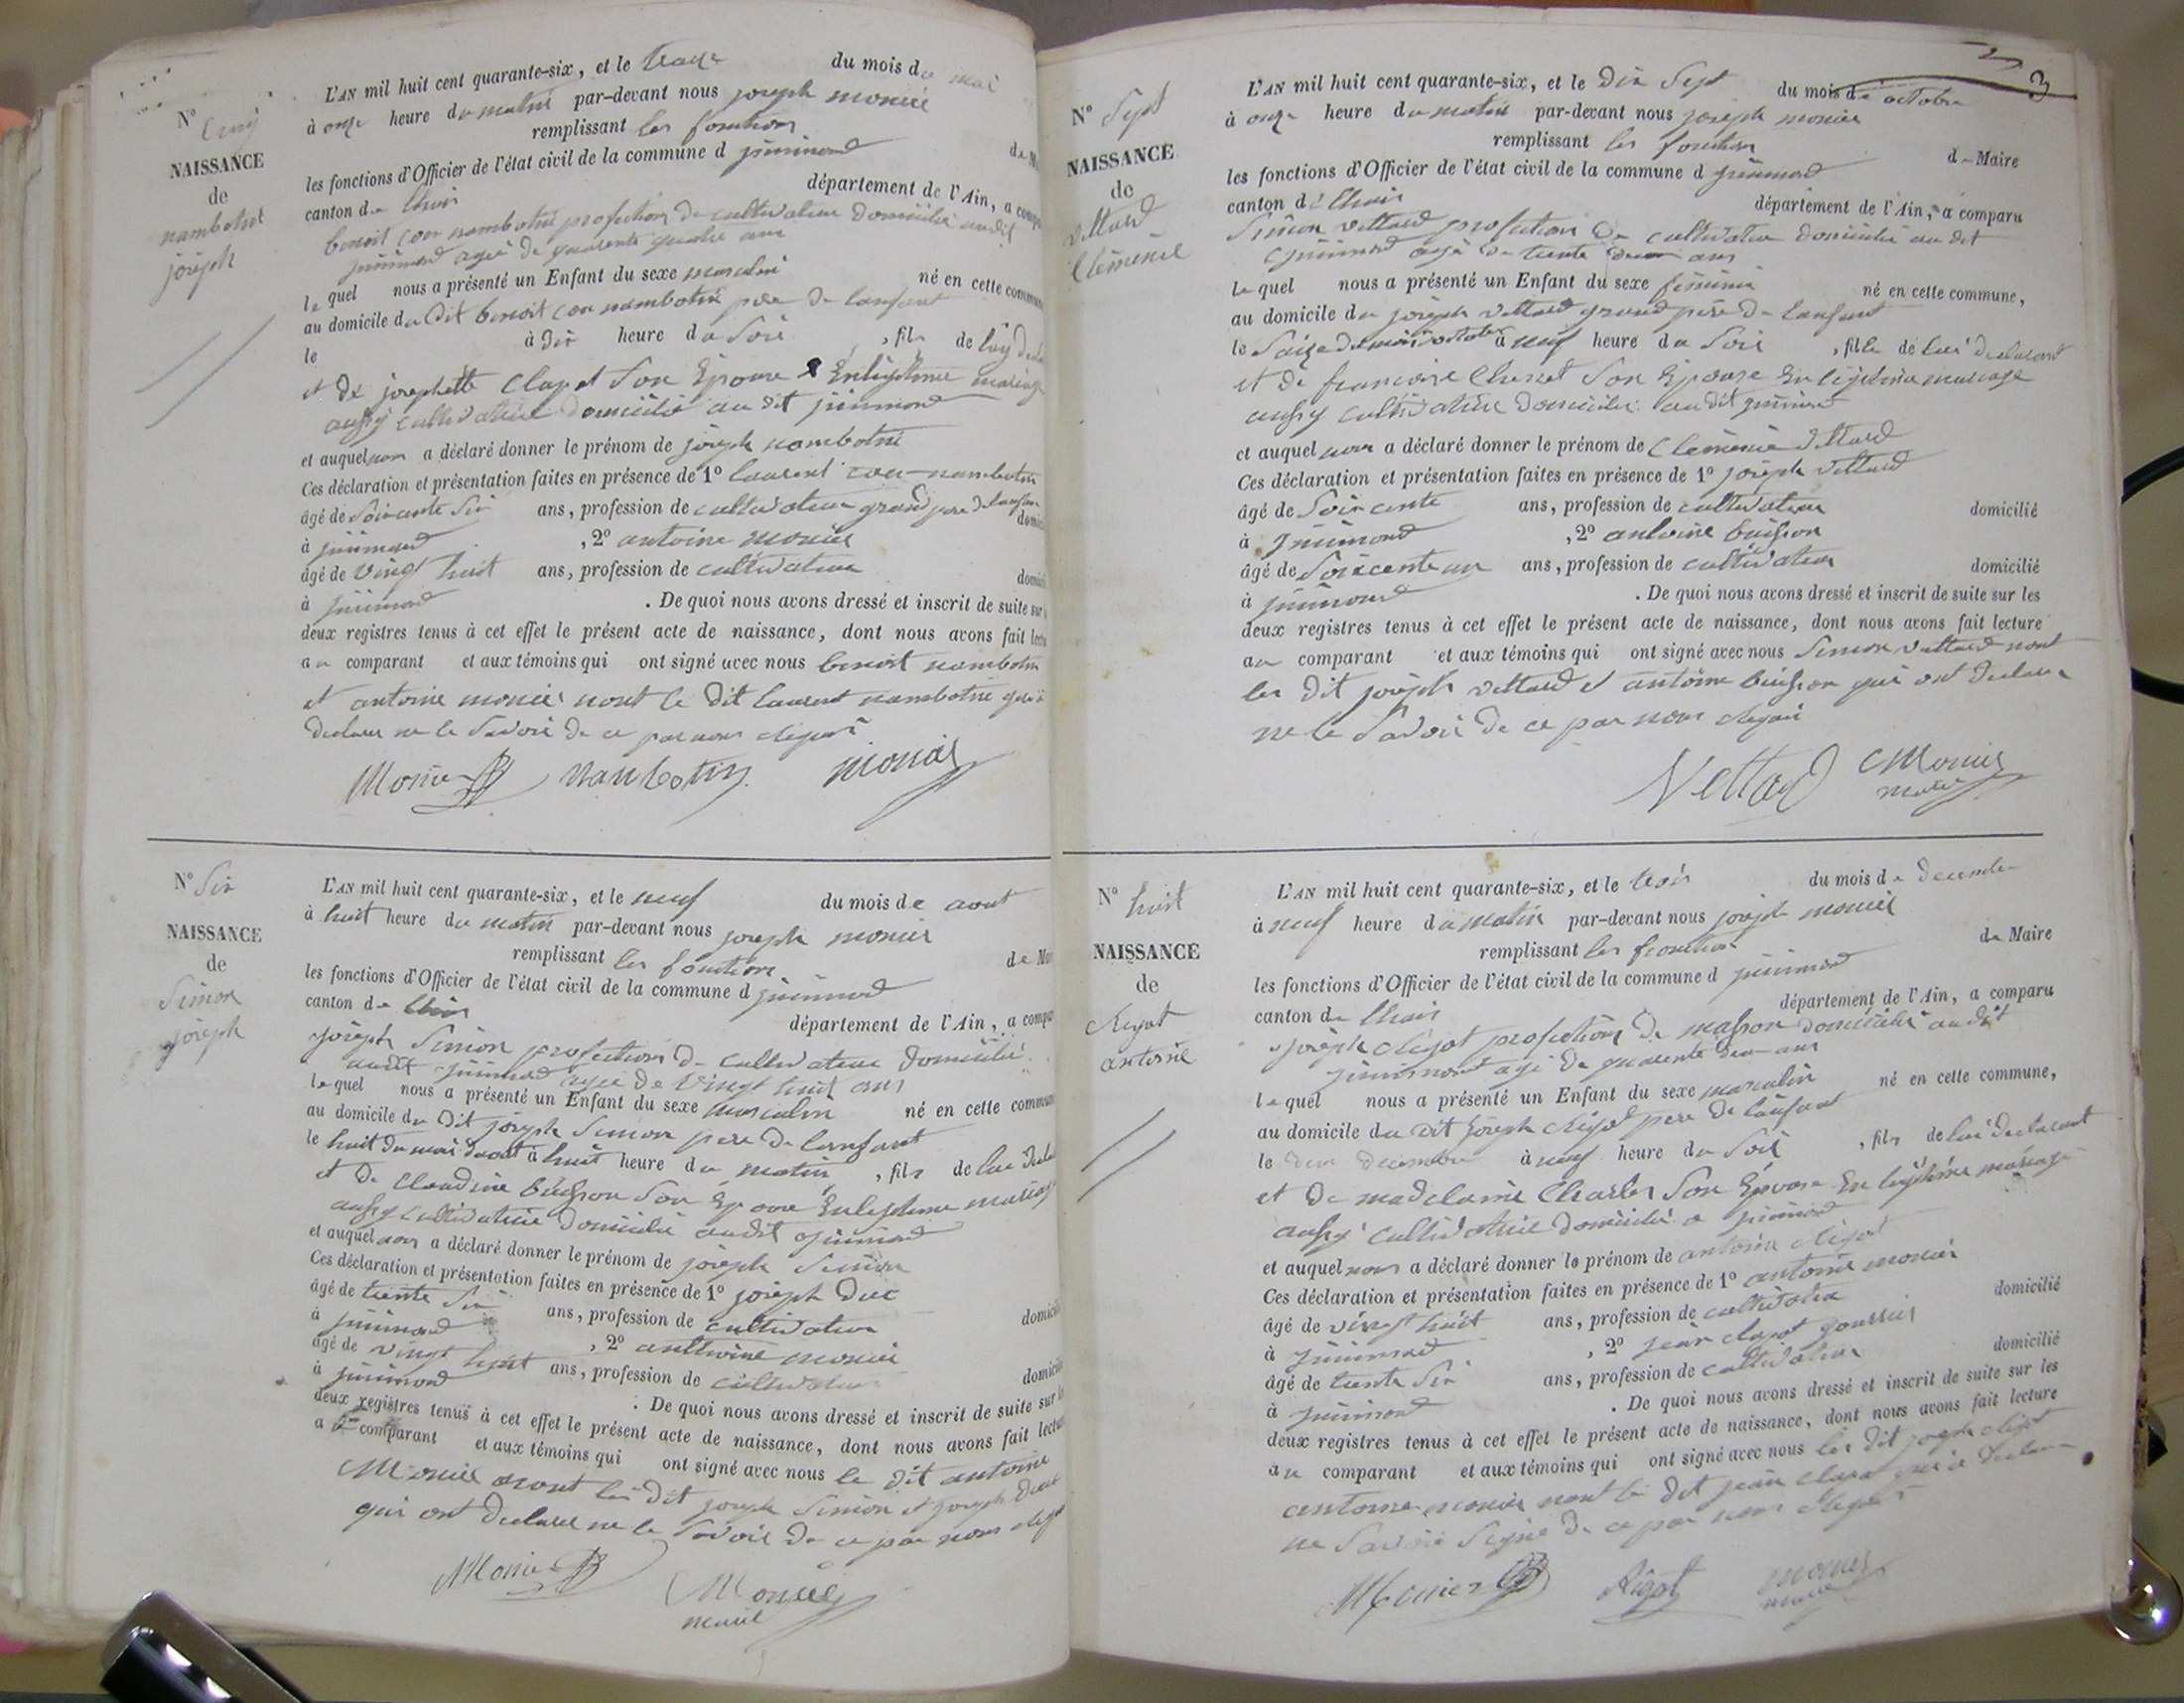 N° Cinq
NAISSANCE
de
nambotin
joseph
L'AN mil huit cent quarante-six, et le treize du mois de mai
à onze heure du matin par-devant nous joseph monier
remplissant les fonctions
les fonctions d'Officier de l'état civil de la commune d jujurieux
canton de département de l'Ain, a compa
benoit nambotin profection de cultivateur domicilié audit
agé de quarente quatre ans
le quel nous a présenté un Enfant du sexe masculin né en cette commune
au domicile du dit benoit nambotin pere de lanfant
le à dix heure du soir, fils de luy
et de josephette Clapet son Epouse En legitime mariage
aussy cultivatrice domicilié au dit
et auquel nous a déclaré donner le prénom de joseph nambotin
Ces déclaration et présentation faites en présence de 1° laurent nambotin
âgé de soixcente six ans, profession de cultivateur grand pere de lanfan
à , 2° antoine monier
âgé de vingt huit ans, profession de cultivateur
à . De quoi nous avons dressé et inscrit de suite sur
deux registres tenus à cet effet le présent acte de naissance, dont nous avons fait lectu
au comparant et aux témoins qui ont signé avec nous benoit nambotin
et antoine monier nont le dit laurent nambotin qui a
declarer ne le savoir de ce par nous
Monier nambotin monier
N° Six
NAISSANCE
de
Simon
joseph
L'AN mil huit cent quarante-six, et le neuf du mois de aout
à huit heure du matin par-devant nous joseph monier
remplissant les fonction
les fonctions d'Officier de l'état civil de la commune d
canton de département de l'Ain, a compa
joseph Simon profection de cultivateur domicilié
audit agé de vingt huit ans
le quel nous a présenté un Enfant du sexe masculin né en cette commun
au domicile du dit joseph Simon pere de lanfant
le huit du mois daout à huit heure du matin, fils de lui
et de Claudine buisson son Epouse En legitime mariage
aussy cultivatrice domicilié audit
et auquel nous a déclaré donner le prénom de joseph Simon
Ces déclaration et présentation faites en présence de 1° joseph Duc
âgé de trente six ans, profession de cultivateur
à , 2° anthoine monier domicilié
âgé de vingt huit ans, profession de cultivateur
à . De quoi nous avons dressé et inscrit de suite sur
deux registres tenus à cet effet le présent acte de naissance, dont nous avons fait lectur
au comparant et aux témoins qui ont signé avec nous le dit antoine
Monier nont les dit joseph Simon et joseph Duc
qui ont declarer ne le savoir de ce par nous
Monier Monier
maire
3
N° Sept
NAISSANCE
de
vettard
Clémence
L'AN mil huit cent quarante-six, et le dix Sept du mois de octobre
à onze heure du matin par-devant nous joseph monier
remplissant les fonction
les fonctions d'Officier de l'état civil de la commune d de Maire
canton d département de l'Ain, a comparu
Simon vettard profection de cultivateur domicilié au dit
agé de trente deux ans
le quel nous a présenté un Enfant du sexe feminin né en cette commune,
au domicile du joseph vettard grand pere de lanfant
le Saize du mois octobre à neuf heure du Soir, fille de lui declarant
et de francoise Chenet son Epouse En legitime mariage
aussy cultivatrice domicilié audit
et auquel nous a déclaré donner le prénom de Clémence vettard
Ces déclaration et présentation faites en présence de 1° joseph vettard
âgé de soixcente ans, profession de cultivateur domicilié
à , 2° antoine buisson
âgé de soixcente un ans, profession de cultivateur domicilié
à . De quoi nous avons dressé et inscrit de suite sur les
deux registres tenus à cet effet le présent acte de naissance, dont nous avons fait lecture
au comparant et aux témoins qui ont signé avec nous Simon vettard nont
les dit joseph vettard et antoine buisson qui ont declarer
ne le savoir de ce par nous
Vettard Monier
maire
N° huit
NAISSANCE
de
Rigot
antoine
L'AN mil huit cent quarante-six, et le trois du mois de decembre
à neuf heure du matin par-devant nous joseph monier
remplissant les fonction
les fonctions d'Officier de l'état civil de la commune d de Maire
canton de département de l'Ain, a comparu
joseph Rigot profection de masson domicilié audit
agé de quarente deux ans
le quel nous a présenté un Enfant du sexe masculin né en cette commune,
au domicile du dit joseph Rigot pere de lanfant
le deux decembre à neuf heure du Soir, fils de lui declarant
et de madelaine Charles son Epouse En legitime mariage
aussy cultivatrice domicilié a
et auquel nous a déclaré donner le prénom de antoine Rigot
Ces déclaration et présentation faites en présence de 1° antoine monier
âgé de vingt huit ans, profession de cultivateur domicilié
à , 2° jean
âgé de trente six ans, profession de cultivateur domicilié
à . De quoi nous avons dressé et inscrit de suite sur les
deux registres tenus à cet effet le présent acte de naissance, dont nous avons fait lecture
au comparant et aux témoins qui ont signé avec nous les dit joseph Rigot
antoine monier nont le dit jean qui a declarer
ne savoir signe de ce par nous
Monier Rigot monier
maire